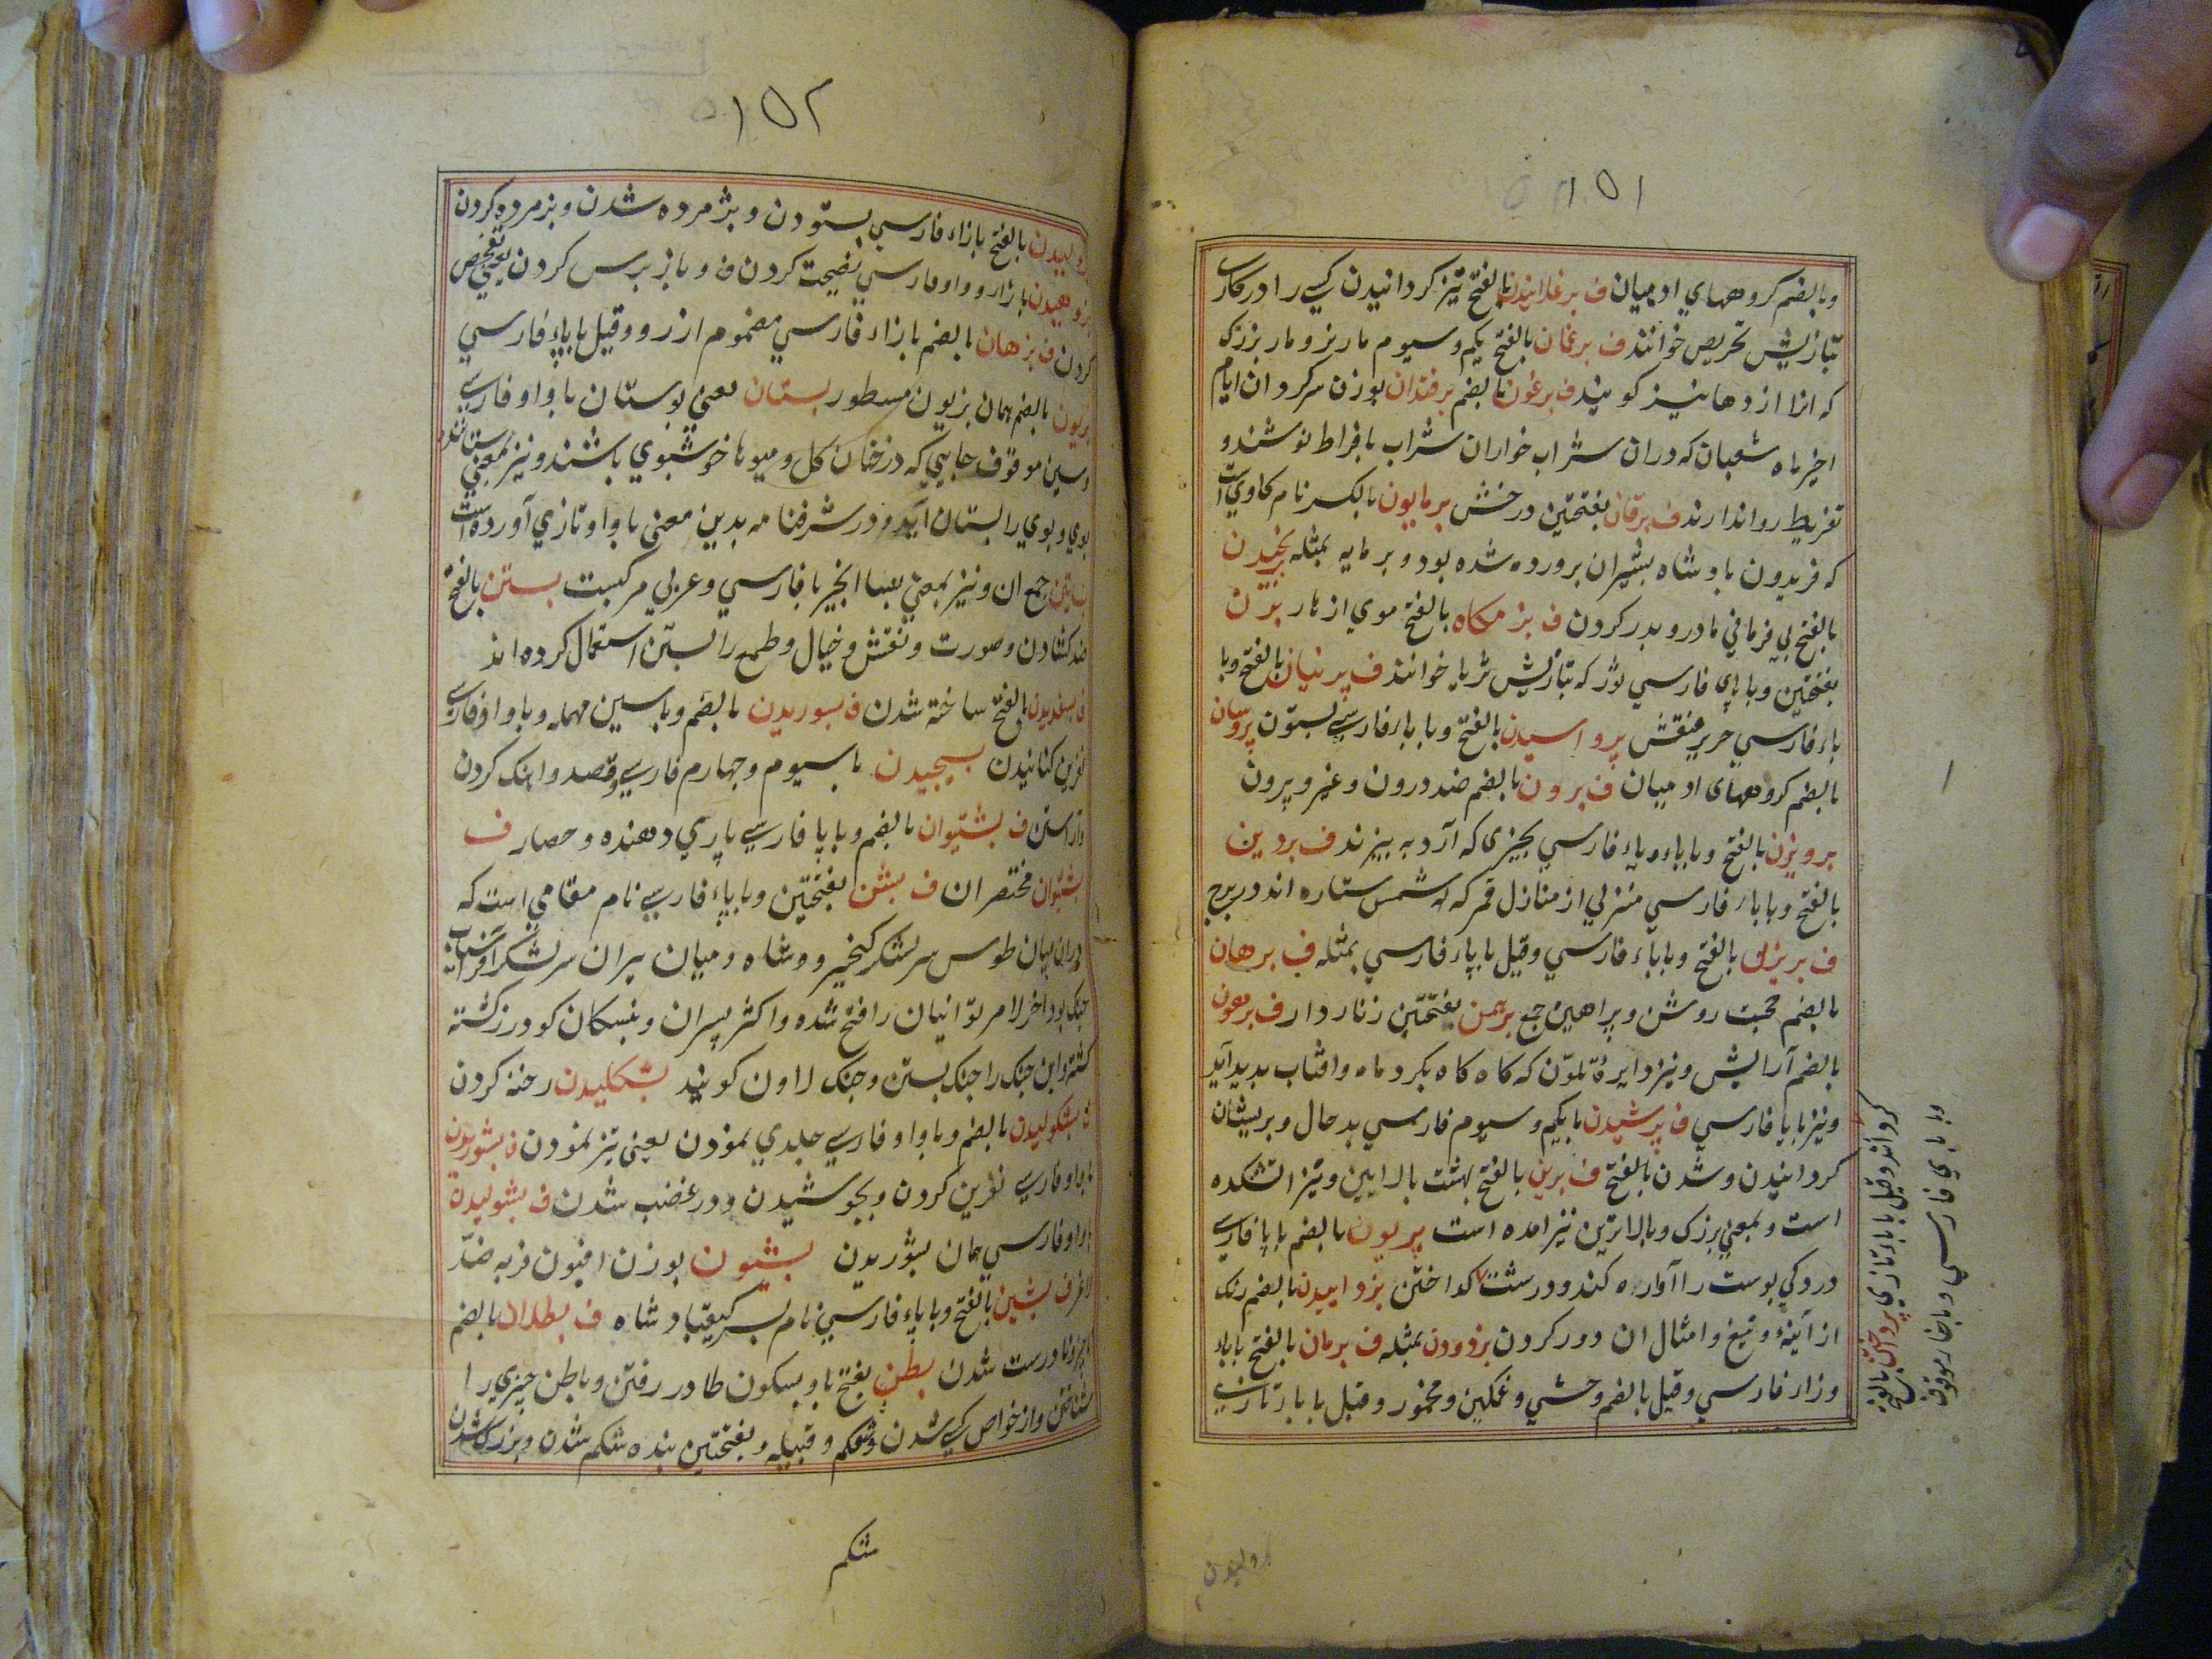 ۱۵۱
وبالضم کروههاي ادمیان ف برغلانیدن بالفتح تیز کردانیدن کسی را در کاری
بتازیش تحریص خوانند ف برغمان بالفتح یکم وسیوم مار بز و مار بزرک
که انرا ازدها نیز کویند ف برغون بالضم برفندان بوزن سرکردان ایام
اخیر ماه شعبان که دران شراب خواران شراب بافراط نوشند و
تفریط روا ندارند ف برقان بفتحتین درخش برمایون بالکسر نام کاوی است
که فریدون بادشاه بشیران برورده شده بود و برمایه بمثله
بالفتح بی فرمانی مادر و بدر کردن ف بزمکاه بالفتح موي از نار بزن
بفتحتین وبا باي فارسي بتازیش ثریا خوانند ف برنیان بالفتح وبا
باء فارسي حریر منقش برواسیدن بالفتح وبا باء فارسی بستون بروسان
بالضم کروههای ادمیان ف برون بالضم ضد درون وغیر وبرون
برویزن بالفتح وبا باء وباء فارسي بجیزی که آرد به بیزند ف بروین
بالفتح وبا باء فارسي منزلي از منازل قمر که ان شش ستاره اند در برج
ف بریزن بالفتح وبا باء فارسي وقیل با باء فارسي بمثله ف برهان
بالضم حجت روشن وبراهین جمع برهمن بفتحتین زنار دار ف برهون
بالضم آرایش ونیز دایرهٔ ملون که کاه کاه بکرد ماه وافتاب بدید آید
ونیز با باء فارسي ف برشیدن با یکم وسیوم فارسي بد حال وبریشان
کردانیدن وشدن بالفتح ف برین بالفتح بهشت بالایین ونیز اتشکده
است وبمعنی بزرک وبالاترین نیز امده است بریون بالضم با باء فارسي
دردي که بوست را آواره کند ودرشت کداختن بزداییدن بالضم زنک
از آینه وتیغ وامثال ان دور کردن بزدودن بمثله ف بزمان بالفتح با باء
وزاء فارسي وقیل بالضم وحشي وغمکین ومخمور وقیل با باء تازي
کرد اند وقیل با باء تازي برداختن بالفتح
وبا باي فارسي وبا خاء موقوف
بژولیدن
۱۵۲
ژولیدن بالفتح بازاء فارسي بستودن وبژمرده شدن وبژمرده کردن
بژوهیدن بازاء وواو فارسي نصیحت کردن ف وباز برس کردن یعني تفحص
کردن ف بزهان بالضم بازاء فارسي مضموم ارزو وقیل با باء فارسي
بزیون بالضم همان بزیون مسطور بستان یعني بوستان با واو فارسي
وسین موقوف جایي که درختان کل ومیوها خوشبوي باشند ونیز بمعني ستاننده
بوي وبوي را بستان اید ودر شرفنامه بدین معنی با واو تازي آورده است
بساتین جمع ان ونیز بمعني با فارسي وعربي مرکبست بستن بالفتح
ضد کشادن وصورت ونقش وخیال وطمع را بستن استعمال کرده اند
ف بسغدیدن بالفتح ساخته شدن ف بسوریدن بالضم وبا سین مهمله وبا واو فارسي
نفرین کنانیدن بسیجیدن با سیوم وجهارم فارسي وقصد واهنک کردن
واراستن ف بشتیوان بالضم وبا با فارسي یاري دهنده وحصار ف
بشتوان مختصر ان ف بشن بفتحتین وبا باء فارسي نام مقامي است که
دران میان طوس سر لشکر کیخسرو وشاه ومیان بیران سر لشکر افراسیاب
جنک بود اخر لامر تورانیان را فتح شده واکثر بسران ونبسکان کودرز کشته
کشتند واین جنک را جنک بشن وجنک لاون کویند بشکلیدن رخنه کردن
ف بشکولیدن بالضم وبا واو فارسي جلدي نمودن یعنی تیز نمودن ف بشوریدن
با واو فارسي نفرین کردن وبجوشیدن ودر غضب شدن ف بشولیدن
با واو فارسي همان بشوریدن بشیون بوزن افیون فربه ضد
لاغر ف بشین بالفتح وبا باء فارسي نام بسر کیقباد شاه ف بطلان بالضم
نادرست شدن بطن بفتح با وبسکون طا در رفتن وباطن جیزي را
شناختن واز خواص کسي شدن وشکم وقبیله وبفتحتین بنده شکم شدن وبزرک شدن
شکم